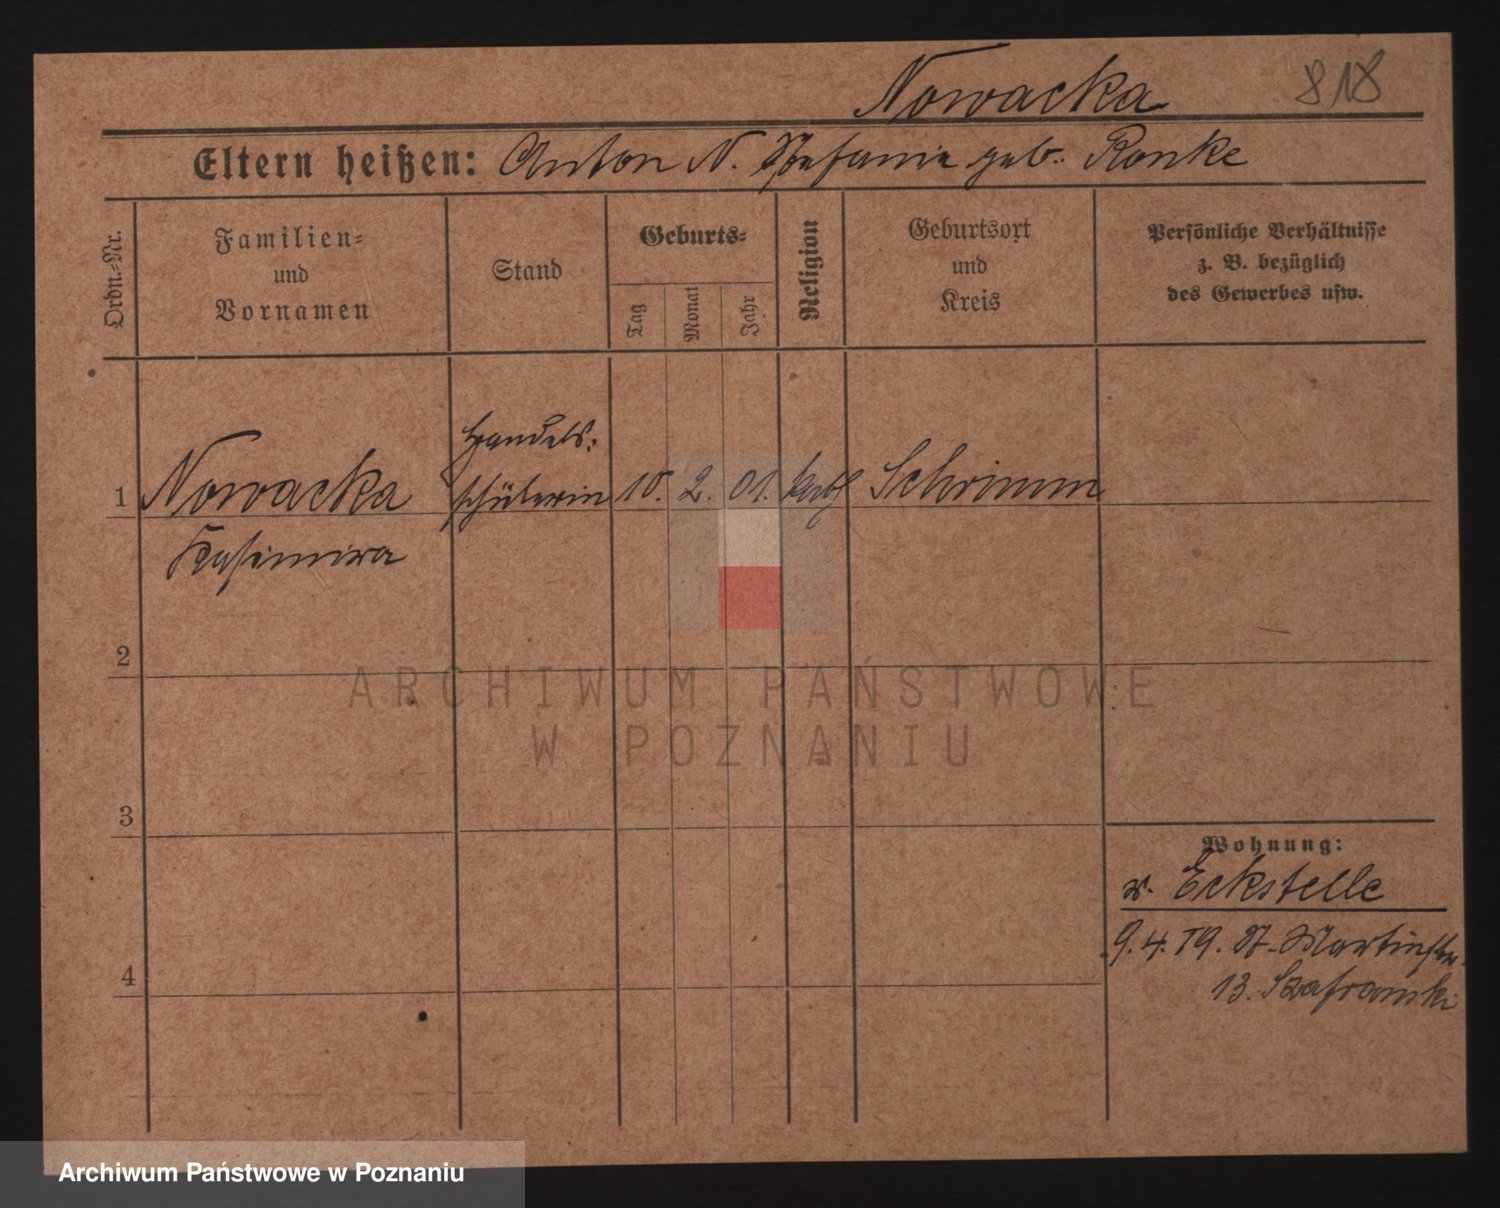 Nowacka 818
Eltern heißen: Anton N. Stefanie geb. Ronke
Ordn.-Nr.
Familien-
und
Vornamen
Stand
Geburts-
Tag
Monat
Jahr
Religion
Geburtsort
und
Kreis
Persönliche Verhältnisse
z. B. bezüglich
des Gewerbes usw.
Handels-
1 Nowacka schülerin 10. 2. 01. kath Schrimm
Kasimira
2
3
4
Wohnung:
v. Eckstelle
9.4.19. St. Martinstr.
13. Szafranski
ARCHIWUM PAŃSTWOWE
W POZNANIU
Archiwum Państwowe w Poznaniu